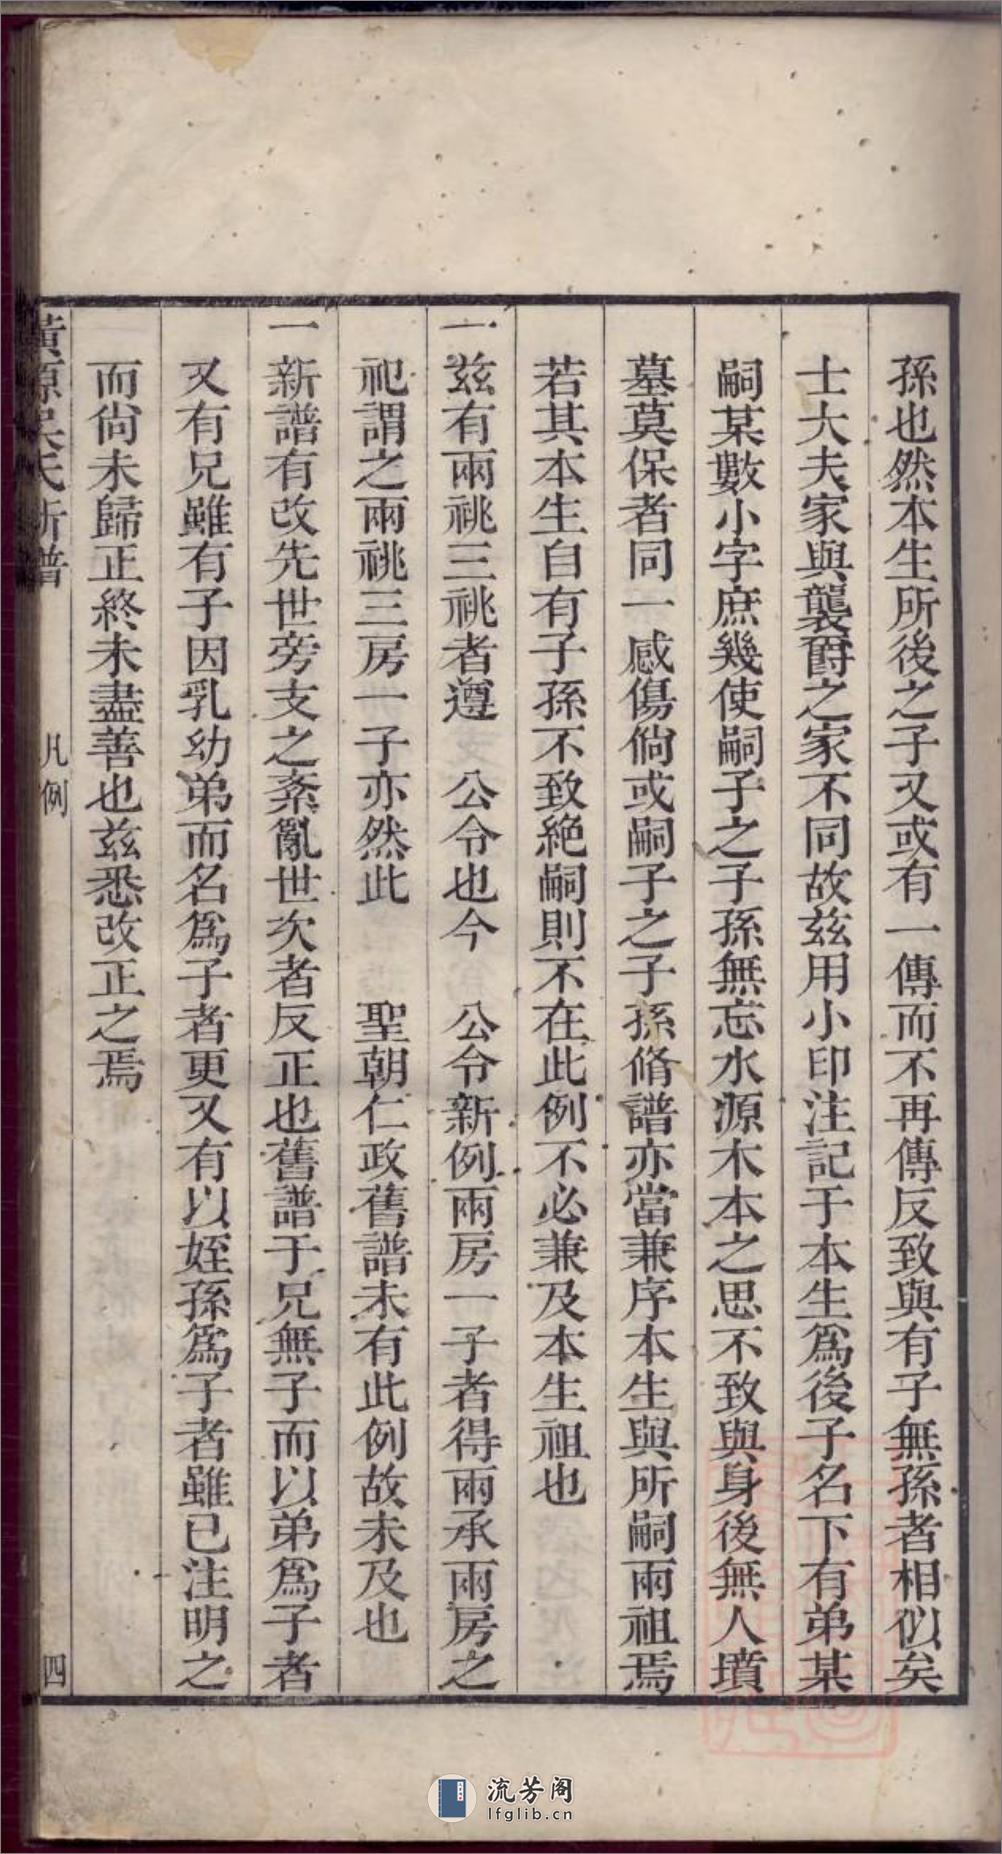 孫也然本生所後之子又或有一傳而不再傳反致與有子無孫者相似矣
士大夫家與襲爵之家不同故茲用小印注記于本生爲後子名下有弟某
嗣某數小字庶幾使嗣子之子孫無忘水源木本之思不致與身後無人墳
墓莫保者同一感傷倘或嗣子之子孫脩譜亦當兼序本生與所嗣兩祖焉
若其本生自有子孫不致絕嗣則不在此例不必兼及本生祖也
一茲有兩祧三祧者遵 公令也今 公令新例兩房一子者得兩承兩房之
祀謂之兩祧三房一子亦然此 聖朝仁政舊譜未有此例故未及也
一新譜有改先世旁支之紊亂世次者反正也舊譜于兄無子而以弟爲子者
又有兄雖有子因乳幼弟而名爲子者更又有以姪孫爲子者雖已注明之
而尙未歸正終未盡善也茲悉改正之焉
黃源吳氏新譜 凡例 四
流芳阁
lfglib.cn